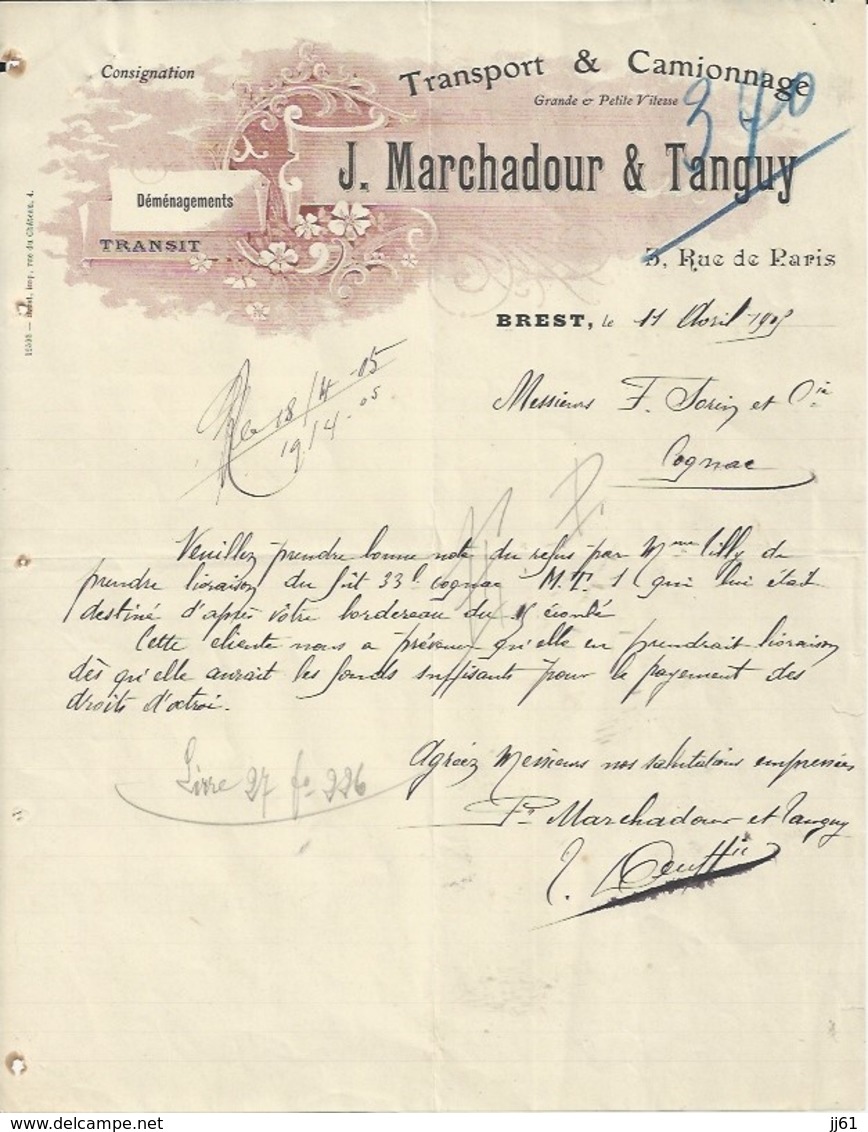 Consignation
Transport & Camionnage
Grande & Petite Vitesse
340
J. Marchadour & Tanguy
Déménagements
TRANSIT
5, Rue de Paris
12598 — Brest, imp. rue du Château, 4.
BREST, le 11 Avril 1905
18/4-05
19/4-05
Messieurs F. Sorin et Cie
Cognac
Veuillez prendre bonne note du refus par Mme Lilly de
prendre livraison du fût 33l cognac M.T. 1 qui lui était
destiné d'après vôtre bordereau du 15 écoulé
Cette cliente nous a prévenu qu'elle en prendrait livraison
dès qu'elle aurait les fonds suffisants pour le payement des
droits d'octroi.
Livre 27 fo 226
Agréez Messieurs nos salutations empressées
Pr Marchadour et Tanguy
jj61